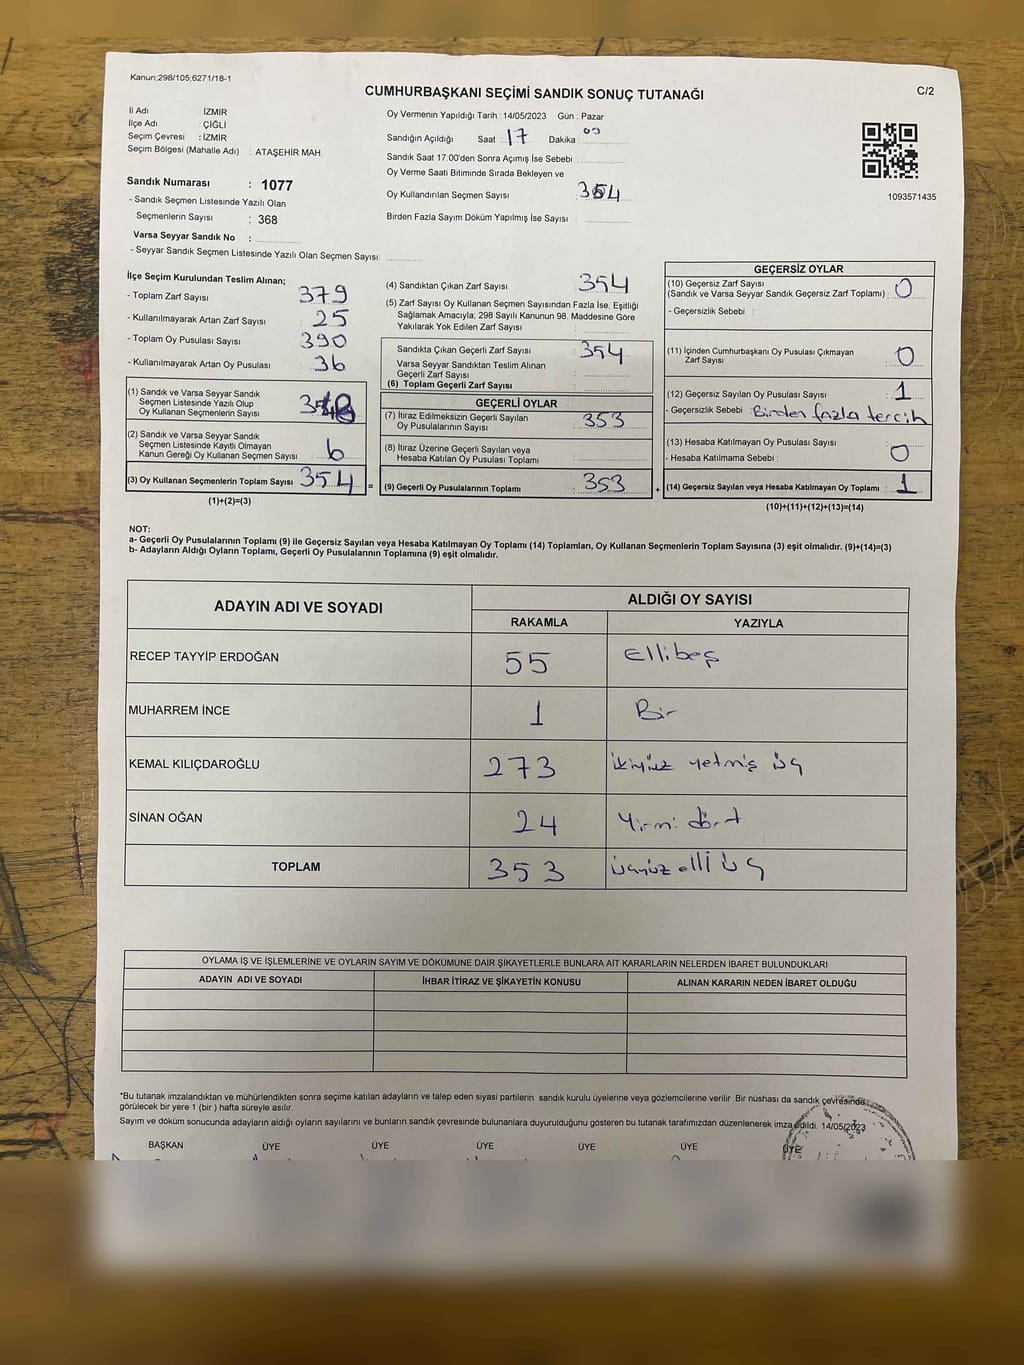 Kanun:298/105,6271/18-1
CUMHURBAŞKANI SEÇİMİ SANDIK SONUÇ TUTANAĞI
C/2
İl Adı : İZMİR
İlçe Adı : ÇİĞLİ
Seçim Çevresi : İZMİR
Seçim Bölgesi (Mahalle Adı) : ATAŞEHİR MAH.
Sandık Numarası : 1077
- Sandık Seçmen Listesinde Yazılı Olan
Seçmenlerin Sayısı : 368
Varsa Seyyar Sandık No :
- Seyyar Sandık Seçmen Listesinde Yazılı Olan Seçmen Sayısı:
Oy Vermenin Yapıldığı Tarih : 14/05/2023 Gün : Pazar
Sandığın Açıldığı Saat : 17 Dakika :
Sandık Saat 17.00'den Sonra Açımış İse Sebebi :
Oy Verme Saati Bitiminde Sırada Bekleyen ve
Oy Kullandırılan Seçmen Sayısı : 354
Birden Fazla Sayım Döküm Yapılmış İse Sayısı :
1093571435
İlçe Seçim Kurulundan Teslim Alınan;
- Toplam Zarf Sayısı : 379
- Kullanılmayarak Artan Zarf Sayısı : 25
- Toplam Oy Pusulası Sayısı : 390
- Kullanılmayarak Artan Oy Pusulası : 36
(1) Sandık ve Varsa Seyyar Sandık
Seçmen Listesinde Yazılı Olup
Oy Kullanan Seçmenlerin Sayısı : 348
(2) Sandık ve Varsa Seyyar Sandık
Seçmen Listesinde Kayıtlı Olmayan
Kanun Gereği Oy Kullanan Seçmen Sayısı : 6
(3) Oy Kullanan Seçmenlerin Toplam Sayısı : 354 =
(1)+(2)=(3)
(4) Sandıktan Çıkan Zarf Sayısı : 354
(5) Zarf Sayısı Oy Kullanan Seçmen Sayısından Fazla İse, Eşitliği
Sağlamak Amacıyla; 298 Sayılı Kanunun 98. Maddesine Göre
Yakılarak Yok Edilen Zarf Sayısı :
Sandıkta Çıkan Geçerli Zarf Sayısı : 354
Varsa Seyyar Sandıktan Teslim Alınan
Geçerli Zarf Sayısı :
(6) Toplam Geçerli Zarf Sayısı :
GEÇERLİ OYLAR
(7) İtiraz Edilmeksizin Geçerli Sayılan
Oy Pusulalarının Sayısı : 353
(8) İtiraz Üzerine Geçerli Sayılan veya
Hesaba Katılan Oy Pusulası Toplamı :
(9) Geçerli Oy Pusulalarının Toplamı : 353 +
GEÇERSİZ OYLAR
(10) Geçersiz Zarf Sayısı
(Sandık ve Varsa Seyyar Sandık Geçersiz Zarf Toplamı) : 0
- Geçersizlik Sebebi :
(11) İçinden Cumhurbaşkanı Oy Pusulası Çıkmayan
Zarf Sayısı : 0
(12) Geçersiz Sayılan Oy Pusulası Sayısı : 1
- Geçersizlik Sebebi : Birden fazla tercih
(13) Hesaba Katılmayan Oy Pusulası Sayısı : 0
- Hesaba Katılmama Sebebi :
(14) Geçersiz Sayılan veya Hesaba Katılmayan Oy Toplamı : 1
(10)+(11)+(12)+(13)=(14)
NOT:
a- Geçerli Oy Pusulalarının Toplamı (9) ile Geçersiz Sayılan veya Hesaba Katılmayan Oy Toplamı (14) Toplamları, Oy Kullanan Seçmenlerin Toplam Sayısına (3) eşit olmalıdır. (9)+(14)=(3)
b- Adayların Aldığı Oyların Toplamı, Geçerli Oy Pusulalarının Toplamına (9) eşit olmalıdır.
ADAYIN ADI VE SOYADI
ALDIĞI OY SAYISI
RAKAMLA YAZIYLA
RECEP TAYYİP ERDOĞAN 55 Ellibeş
MUHARREM İNCE 1 Bir
KEMAL KILIÇDAROĞLU 273 ikiyüz yetmiş üç
SİNAN OĞAN 24 Yirmi dört
TOPLAM 353 üçyüz elli üç
OYLAMA İŞ VE İŞLEMLERİNE VE OYLARIN SAYIM VE DÖKÜMÜNE DAİR ŞİKAYETLERLE BUNLARA AİT KARARLARIN NELERDEN İBARET BULUNDUKLARI
ADAYIN ADI VE SOYADI İHBAR İTİRAZ VE ŞİKAYETİN KONUSU ALINAN KARARIN NEDEN İBARET OLDUĞU
*Bu tutanak imzalandıktan ve mühürlendikten sonra seçime katılan adayların ve talep eden siyasi partilerin sandık kurulu üyelerine veya gözlemcilerine verilir .Bir nüshası da sandık çevresinde
görülecek bir yere 1 (bir ) hafta süreyle asılır.
Sayım ve döküm sonucunda adayların aldığı oyların sayılarını ve bunların sandık çevresinde bulunanlara duyurulduğunu gösteren bu tutanak tarafımızdan düzenlenerek imza edildi. 14/05/2023
BAŞKAN ÜYE ÜYE ÜYE ÜYE ÜYE ÜYE